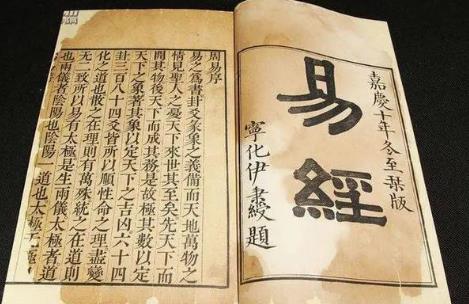 嘉慶十年冬至栞版
易經
寧化伊秉綬題
周易序
易之爲書卦爻彖象之義備而天地萬物之
情見聖人之憂天下來世其至矣先天下而
開其物後天下而成其務是故極其數以定
天下之象著其象以定天下之吉凶六十四
卦三百八十四爻皆所以順性命之理盡變
化之道也散之在理則有萬殊統之在道則
無二致所以易有太極是生兩儀太極者道
也兩儀者陰陽也陰陽一道也太極无